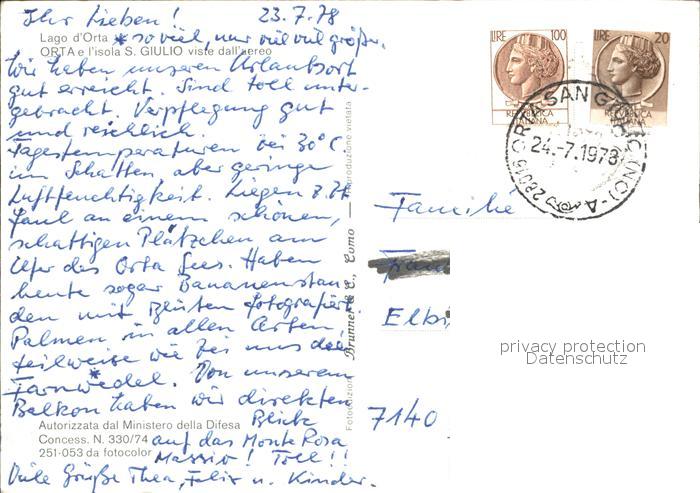 Ihr Lieben! 23.7.78
Lago d'Orta * so viel, nur viel viel größer.
ORTA e l'isola S. GIULIO viste dall'aereo
Wir haben unseren Urlaubsort
gut erreicht. Sind toll unter-
gebracht. Verpflegung gut
und reichlich.
Tagestemperaturen bei 30°C
im Schatten, aber geringe
Luftfeuchtigkeit. Liegen z.Zt.
faul an einem schönen,
schattigen Plätzchen am
Ufer des Orta Sees. Haben
heute sogar Bananenstau
den mit Blüten fotografiert
Palmen in allen Arten,
teilweise wie bei uns der
Farnwedel.* Von unserem
Balkon haben wir direkten
Blick
auf das Monte Rosa
Massiv! Toll!!
Viele Grüße Thea, Felix u. Kinder.
Autorizzata dal Ministero della Difesa
Concess. N. 330/74
251-053 da fotocolor
Fotoedizioni Brunner & C., Como — Riproduzione vietata
LIRE 100
REPUBBLICA
ITALIANA
LIRE 20
REPUBBLICA
ITALIANA
28016 ORTA SAN GIULIO (NO) - A
24.-7.1978
Familie
Elbi
7140
privacy protection
Datenschutz